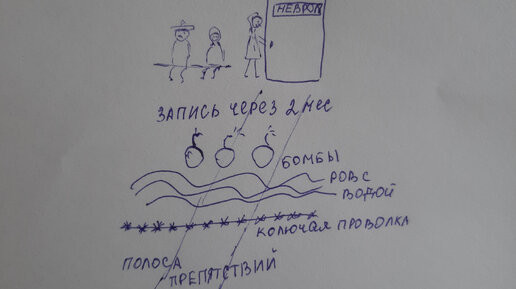 НЕВРОЛ
ЗАПИСЬ ЧЕРЕЗ 2 МЕС
БОМБЫ
РОВ С
ВОДОЙ
КОЛЮЧАЯ ПРОВОЛКА
ПОЛОСА
ПРЕПЯТСТВИЙ